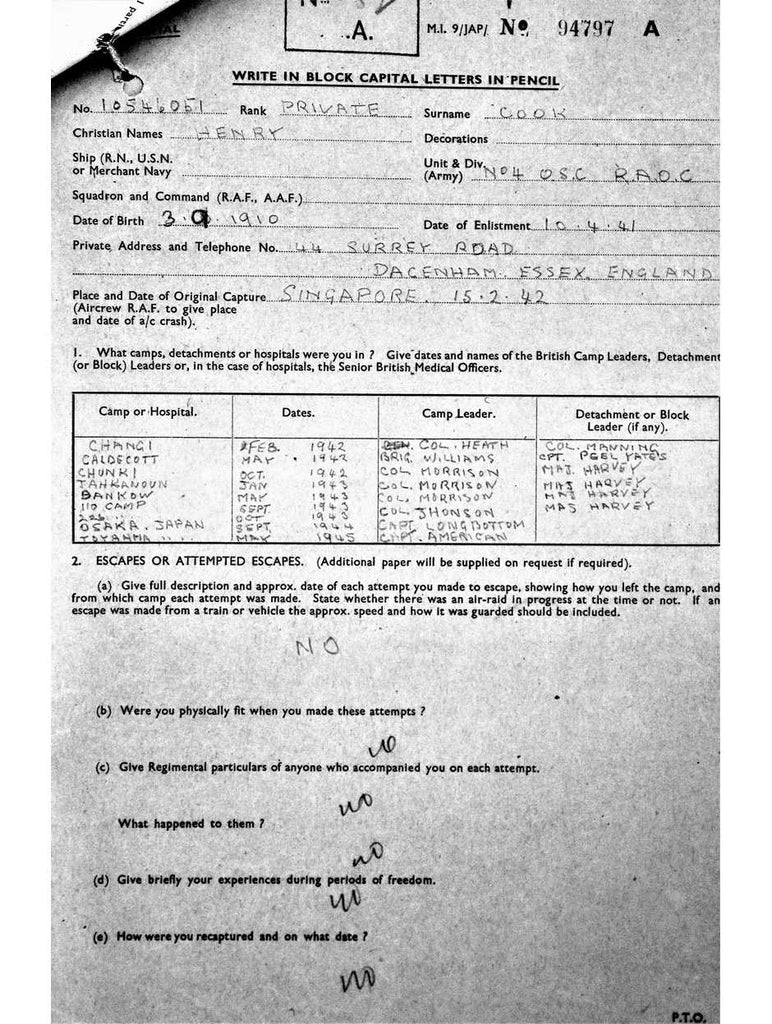 M.I. 9/JAP/ No. 94797 A
.A.
WRITE IN BLOCK CAPITAL LETTERS IN PENCIL
No. 10546051 Rank PRIVATE Surname COOK
Christian Names HENRY Decorations
Ship (R.N., U.S.N. or Merchant Navy
Unit & Div. (Army) No4 O.S.C R.A.O.C
Squadron and Command (R.A.F., A.A.F.)
Date of Birth 3.9.1910 Date of Enlistment 10.4.41
Private Address and Telephone No. 44 SURREY ROAD
DAGENHAM. ESSEX. ENGLAND
Place and Date of Original Capture SINGAPORE. 15.2.42
(Aircrew R.A.F. to give place
and date of a/c crash).
1. What camps, detachments or hospitals were you in ? Give dates and names of the British Camp Leaders, Detachment
(or Block) Leaders or, in the case of hospitals, the Senior British Medical Officers.
Camp or Hospital. Dates. Camp Leader. Detachment or Block Leader (if any).
CHANGI FEB. 1942 COL. HEATH COL. MANNING
CALDECOTT MAY. 1942 BRIG. WILLIAMS CPT. PEEL YATES
CHUNKI OCT. 1942 COL MORRISON MAJ. HARVEY
TAHKANOUN JAN 1943 COL. MORRISON MAJ HARVEY
BANKOW MAY 1943 COL. MORRISON MAJ HARVEY
110 CAMP SEPT. 1943 COL. JHONSON MAJ HARVEY
OCT 1943
OSAKA. JAPAN SEPT. 1944 CAPT. LONGBOTTOM
TOYAMA " " MAY 1945 CAPT. AMERICAN
2. ESCAPES OR ATTEMPTED ESCAPES. (Additional paper will be supplied on request if required).
(a) Give full description and approx. date of each attempt you made to escape, showing how you left the camp, and
from which camp each attempt was made. State whether there was an air-raid in progress at the time or not. If an
escape was made from a train or vehicle the approx. speed and how it was guarded should be included.
NO
(b) Were you physically fit when you made these attempts ?
no
(c) Give Regimental particulars of anyone who accompanied you on each attempt.
no
What happened to them ?
no
(d) Give briefly your experiences during periods of freedom.
no
(e) How were you recaptured and on what date ?
no
P.T.O.